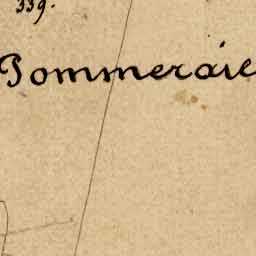 339.
Pommeraie